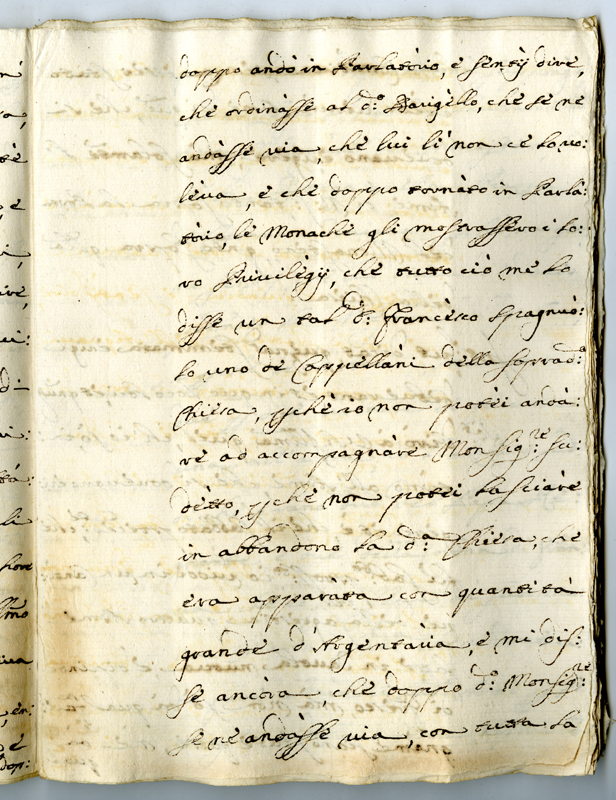 dappo andò in Parlatorio, e sentij dire,
che ordinasse al d.º Barigello, che se ne
andasse via, che lui lì non ce lo vo:
leva, e che dappo tornato in Parla:
torio, le Monache gli mostrassero i lo:
ro Privilegij, che tutto ciò me lo
disse un tal d.º Francesco Spagnuo:
lo uno de Cappellani della soprad.ª
Chiesa, p̱che io non potei andà:
re ad accompagnare Monsig.re su:
detto, p̱che non potei lasciare
in abbandono la d.ª Chiesa, che
era apparata con quantità
grande d'Argentaria, e mi dis:
se ancora, che doppo d.º Monsig.re
se ne andasse via, con tutta la